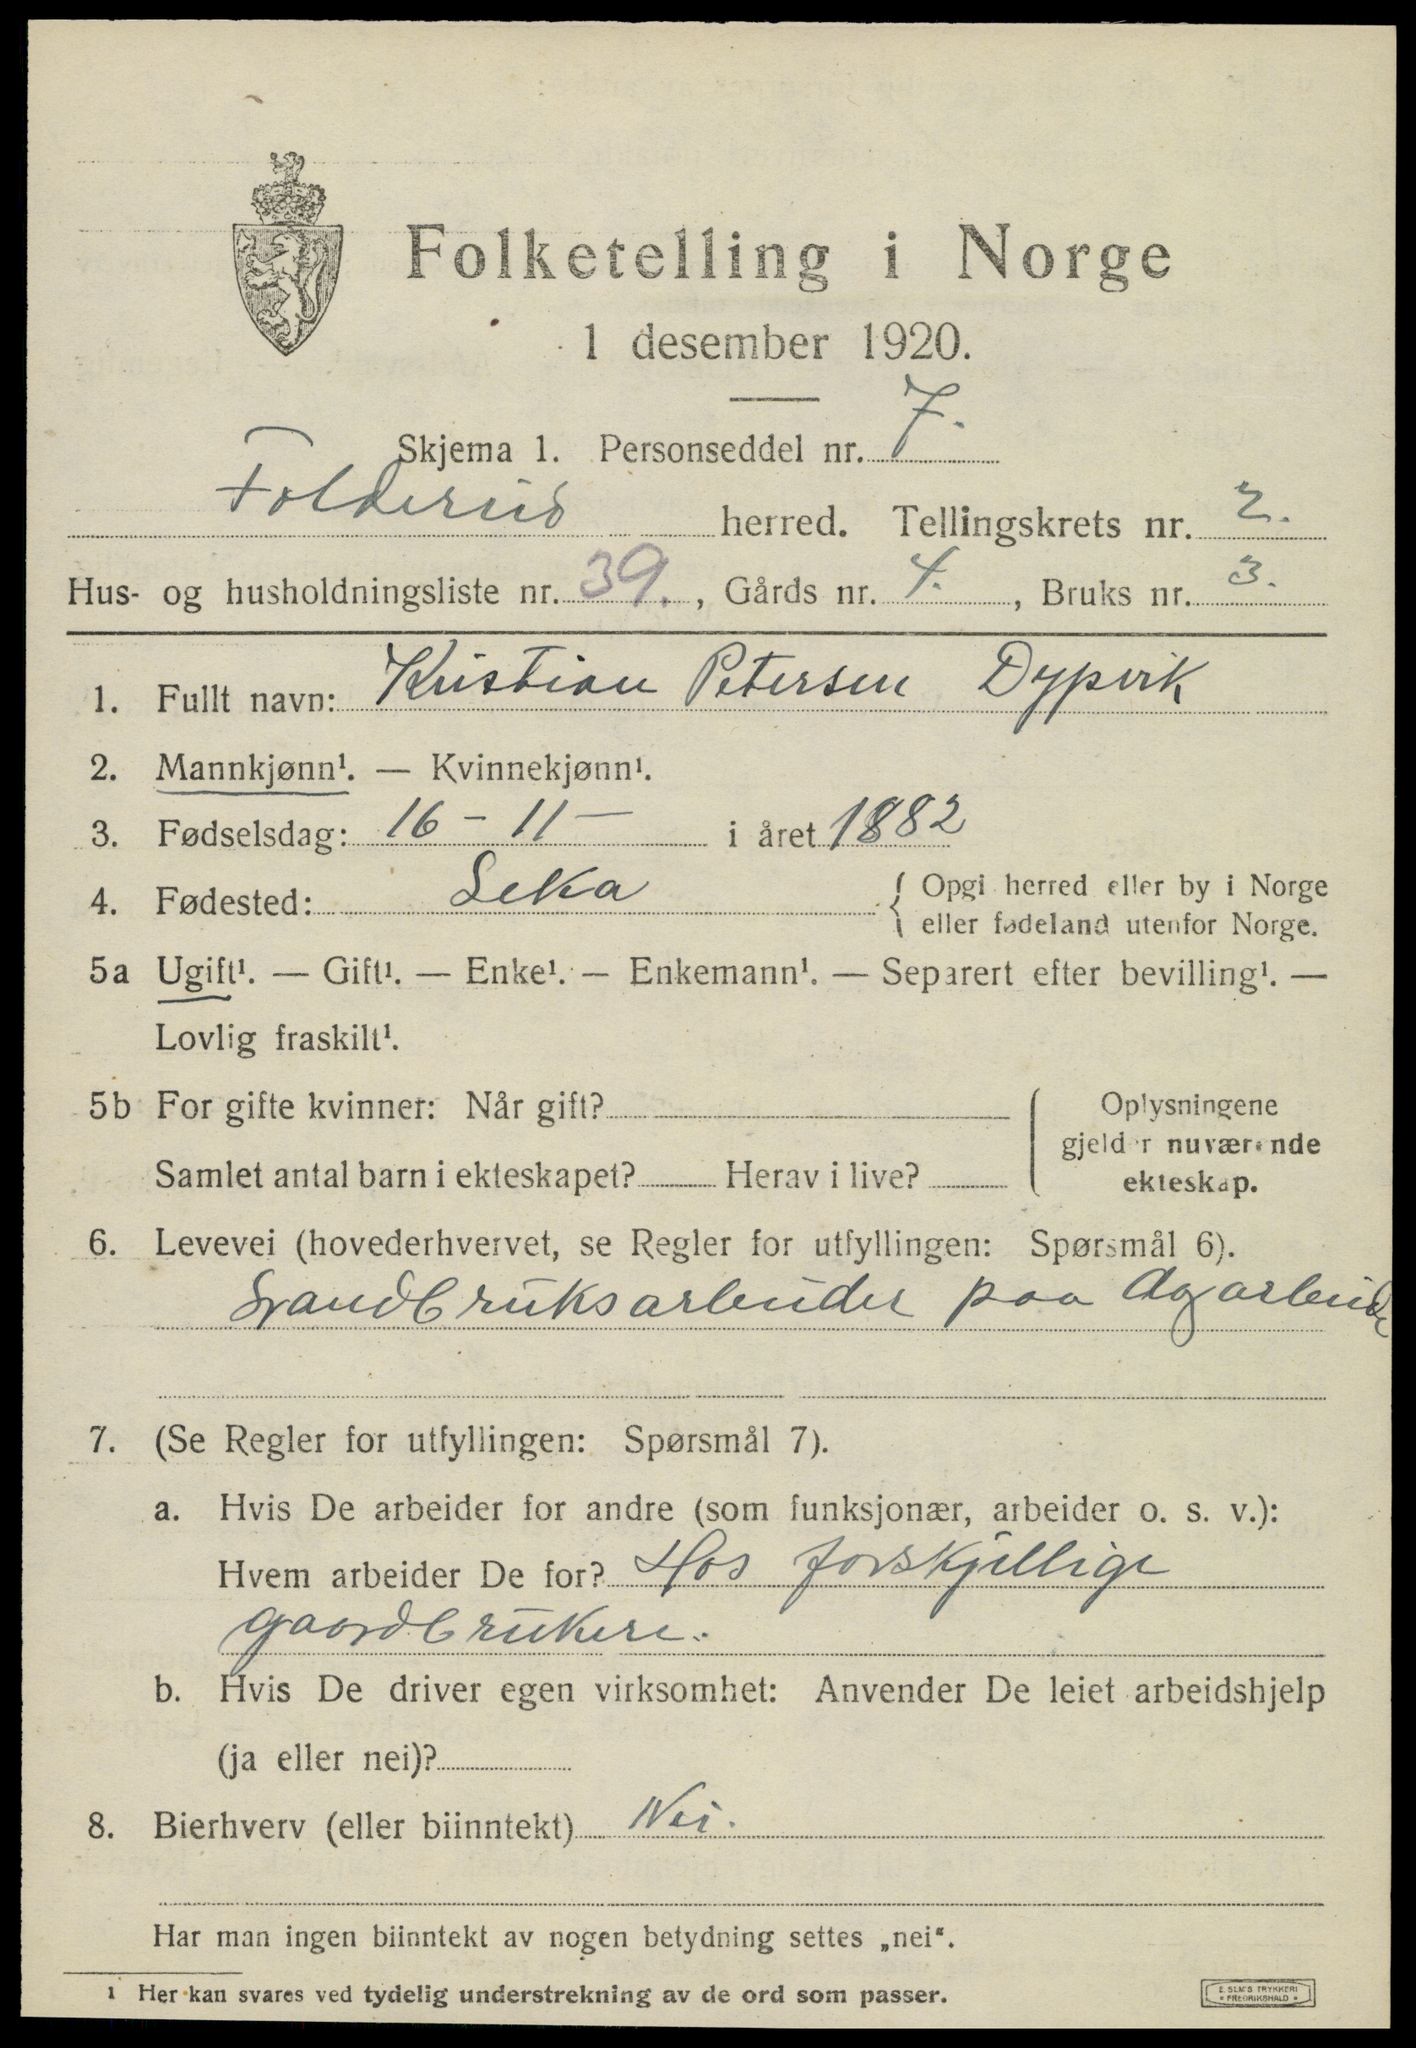 Folketelling i Norge
1 desember 1920.
Skjema 1. Personseddel nr. 7.
Foldereid herred. Tellingskrets nr. 2.
Hus- og husholdningsliste nr. 39., Gårds nr. 4., Bruks nr. 3.
1. Fullt navn: Kristian Petersen Dypvik
2. Mannkjønn¹. — Kvinnekjønn¹.
3. Fødselsdag: 16 - 11 - i året 1882
4. Fødested: Leka { Opgi herred eller by i Norge
eller fødeland utenfor Norge.
5a Ugift¹. — Gift¹. — Enke¹. — Enkemann¹. — Separert efter bevilling¹. —
Lovlig fraskilt¹.
5b For gifte kvinner: Når gift? Oplysningene
gjelder nuværende
Samlet antal barn i ekteskapet? Herav i live? ekteskap.
6. Levevei (hovederhvervet, se Regler for utfyllingen: Spørsmål 6).
Gaardbruksarbeider paa dagarbeide
7. (Se Regler for utfyllingen: Spørsmål 7).
a. Hvis De arbeider for andre (som funksjonær, arbeider o. s. v.):
Hvem arbeider De for? Hos forskjellige
gaardbrukere.
b. Hvis De driver egen virksomhet: Anvender De leiet arbeidshjelp
(ja eller nei)?
8. Bierhverv (eller biinntekt) Nei.
Har man ingen biinntekt av nogen betydning settes „nei“.
1 Her kan svares ved tydelig understrekning av de ord som passer.
E. SEM'S TRYKKERI
* FREDRIKSHALD *